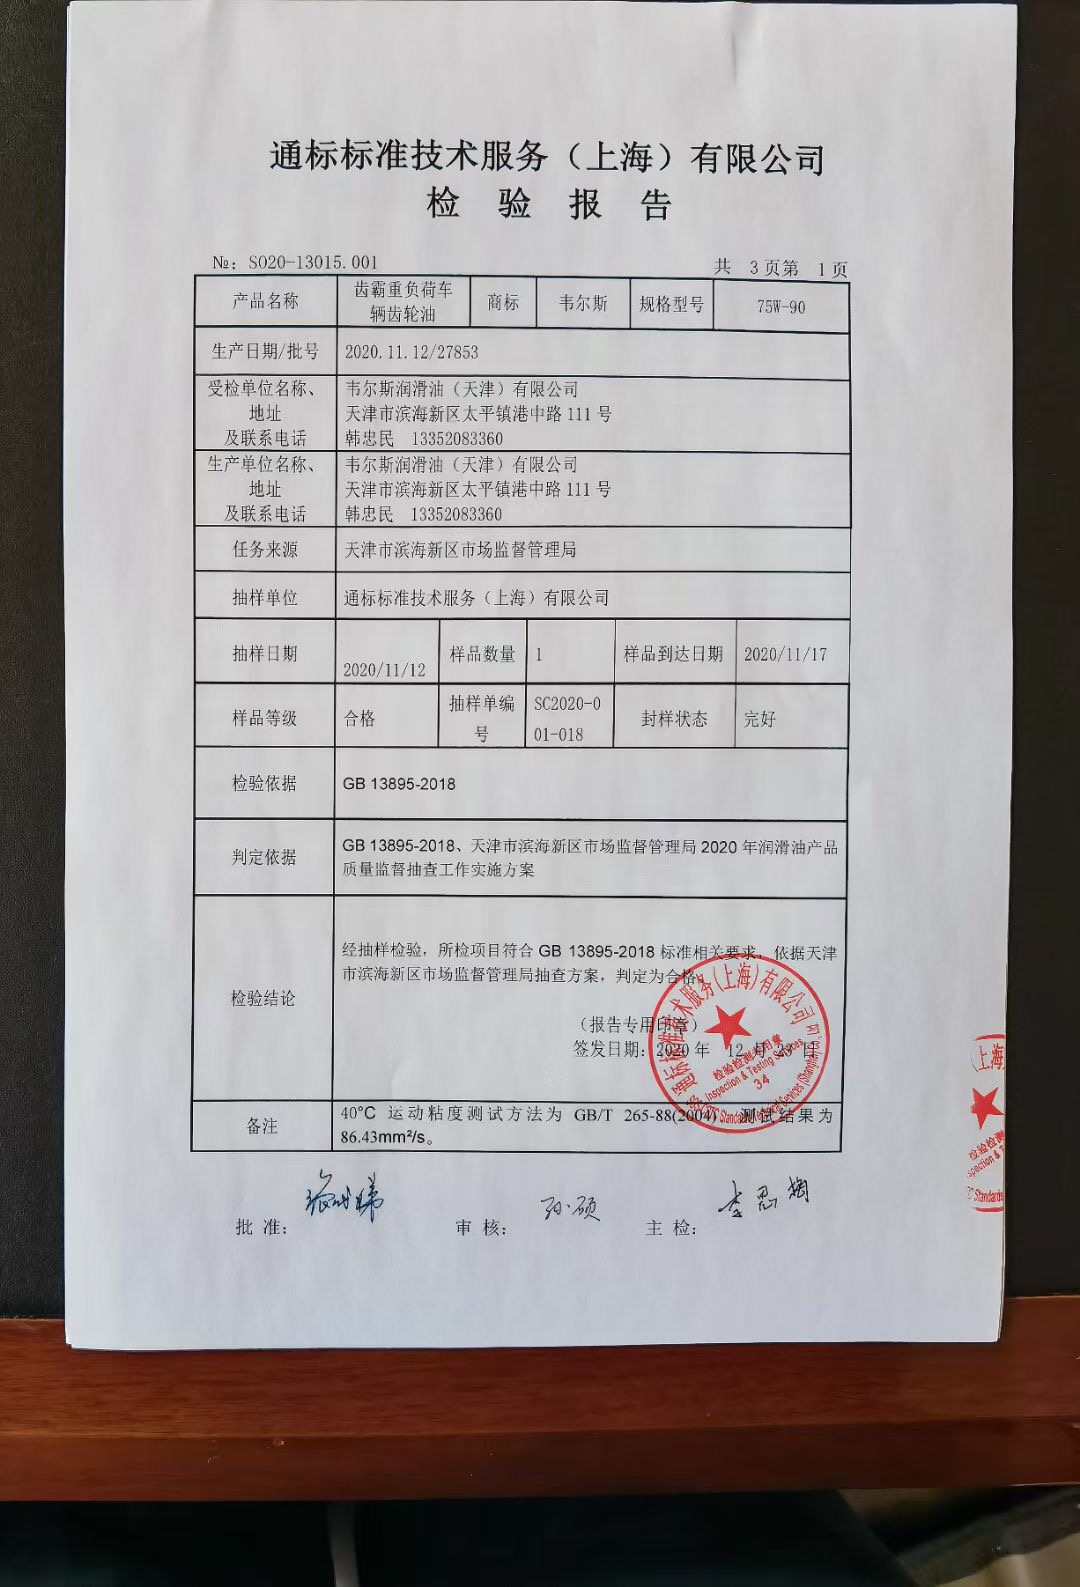 通标标准技术服务（上海）有限公司
检 验 报 告
№：SO20-13015.001
共 3页第 1页
产品名称
齿霸重负荷车
辆齿轮油
商标
韦尔斯
规格型号
75W-90
生产日期/批号
2020.11.12/27853
受检单位名称、
地址
及联系电话
韦尔斯润滑油（天津）有限公司
天津市滨海新区太平镇港中路 111 号
韩忠民 13352083360
生产单位名称、
地址
及联系电话
韦尔斯润滑油（天津）有限公司
天津市滨海新区太平镇港中路 111 号
韩忠民 13352083360
任务来源
天津市滨海新区市场监督管理局
抽样单位
通标标准技术服务（上海）有限公司
抽样日期
2020/11/12
样品数量
1
样品到达日期
2020/11/17
样品等级
合格
抽样单编
号
SC2020-0
01-018
封样状态
完好
检验依据
GB 13895-2018
判定依据
GB 13895-2018、天津市滨海新区市场监督管理局 2020 年润滑油产品
质量监督抽查工作实施方案
检验结论
经抽样检验，所检项目符合 GB 13895-2018 标准相关要求，依据天津
市滨海新区市场监督管理局抽查方案，判定为合格。
（报告专用印章）
签发日期：2020 年 12 月 日
通标标准技术服务(上海)有限公司
检验检测专用章
Inspection & Testing Services
34
备注
40°C 运动粘度测试方法为 GB/T 265-88(2004)，测试结果为
86.43mm²/s。
批 准：
审 核： 孙硕
主 检： 李思
(上海
检验检测
Standards